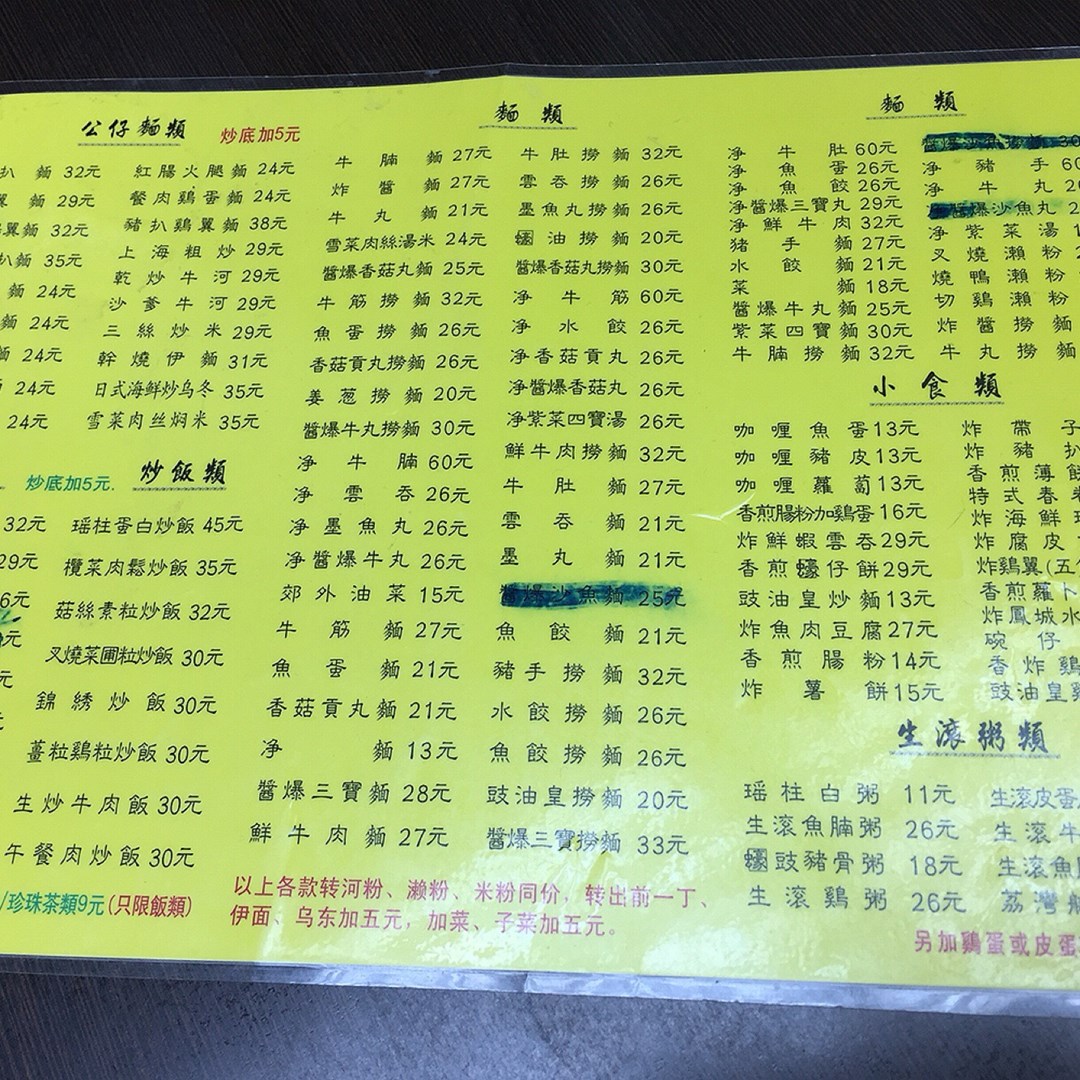 公仔麵類 炒底加5元
扒麵 32元
麵 29元
翼麵 32元
扒麵 35元
麵 24元
麵 24元
麵 24元
24元
24元
紅腸火腿麵 24元
餐肉鷄蛋麵 24元
豬扒鷄翼麵 38元
上海粗炒 29元
乾炒牛河 29元
沙爹牛河 29元
三絲炒米 29元
幹燒伊麵 31元
日式海鮮炒乌冬 35元
雪菜肉丝焖米 35元
炒底加5元. 炒飯類
32元
29元
6元
元
元
瑶柱蛋白炒飯 45元
欖菜肉鬆炒飯 35元
菇絲素粒炒飯 32元
叉燒菜圃粒炒飯 30元
錦綉炒飯 30元
薑粒鷄粒炒飯 30元
生炒牛肉飯 30元
午餐肉炒飯 30元
/珍珠茶類9元(只限飯類)
麵類
牛腩麵 27元
炸醬麵 27元
牛丸麵 21元
雪菜肉絲湯米 24元
醬爆香菇丸麵 25元
牛筋撈麵 32元
魚蛋撈麵 26元
香菇貢丸撈麵 26元
姜葱撈麵 20元
醬爆牛丸撈麵 30元
净牛腩 60元
净雲吞 26元
净墨魚丸 26元
净醬爆牛丸 26元
郊外油菜 15元
牛筋麵 27元
魚蛋麵 21元
香菇貢丸麵 21元
净麵 13元
醬爆三寶麵 28元
鮮牛肉麵 27元
牛肚撈麵 32元
雲吞撈麵 26元
墨魚丸撈麵 26元
蠔油撈麵 20元
醬爆香菇丸撈麵 30元
净牛筋 60元
净水餃 26元
净香菇貢丸 26元
净醬爆香菇丸 26元
净紫菜四寶湯 26元
鮮牛肉撈麵 32元
牛肚麵 27元
雲吞麵 21元
墨丸麵 21元
醬爆沙魚麵 25元
魚餃麵 21元
豬手撈麵 32元
水餃撈麵 26元
魚餃撈麵 26元
豉油皇撈麵 20元
醬爆三寶撈麵 33元
以上各款转河粉、濑粉、米粉同价，转出前一丁、
伊面、乌东加五元，加菜、子菜加五元。
麵類
净牛肚 60元
净魚蛋 26元
净魚餃 26元
净醬爆三寶丸 29元
净鮮牛肉 32元
豬手麵 27元
水餃麵 21元
菜麵 18元
醬爆牛丸麵 25元
紫菜四寶麵 30元
牛腩撈麵 32元
30
净豬手 60
净牛丸 2
醬爆沙魚丸 2
净紫菜湯 1
叉燒瀨粉 2
燒鴨瀨粉
切鷄瀨粉
炸醬撈麵
牛丸撈麵
小食類
咖喱魚蛋 13元
咖喱豬皮 13元
咖喱蘿蔔 13元
香煎腸粉加鷄蛋 16元
炸鮮蝦雲吞 29元
香煎蠔仔餅 29元
豉油皇炒麵 13元
炸魚肉豆腐 27元
香煎腸粉 14元
炸薯餅 15元
炸帶子
炸豬扒
香煎薄餅
特式春卷
炸海鮮
炸腐皮
炸鷄翼(五
香煎蘿卜
炸鳳城水
碗仔
香炸鷄
豉油皇鷄
生滚粥類
瑶柱白粥 11元
生滚魚腩粥 26元
蠔豉豬骨粥 18元
生滚鷄粥 26元
生滚皮蛋
生滚牛
生滚魚
荔灣艇
另加鷄蛋或皮蛋